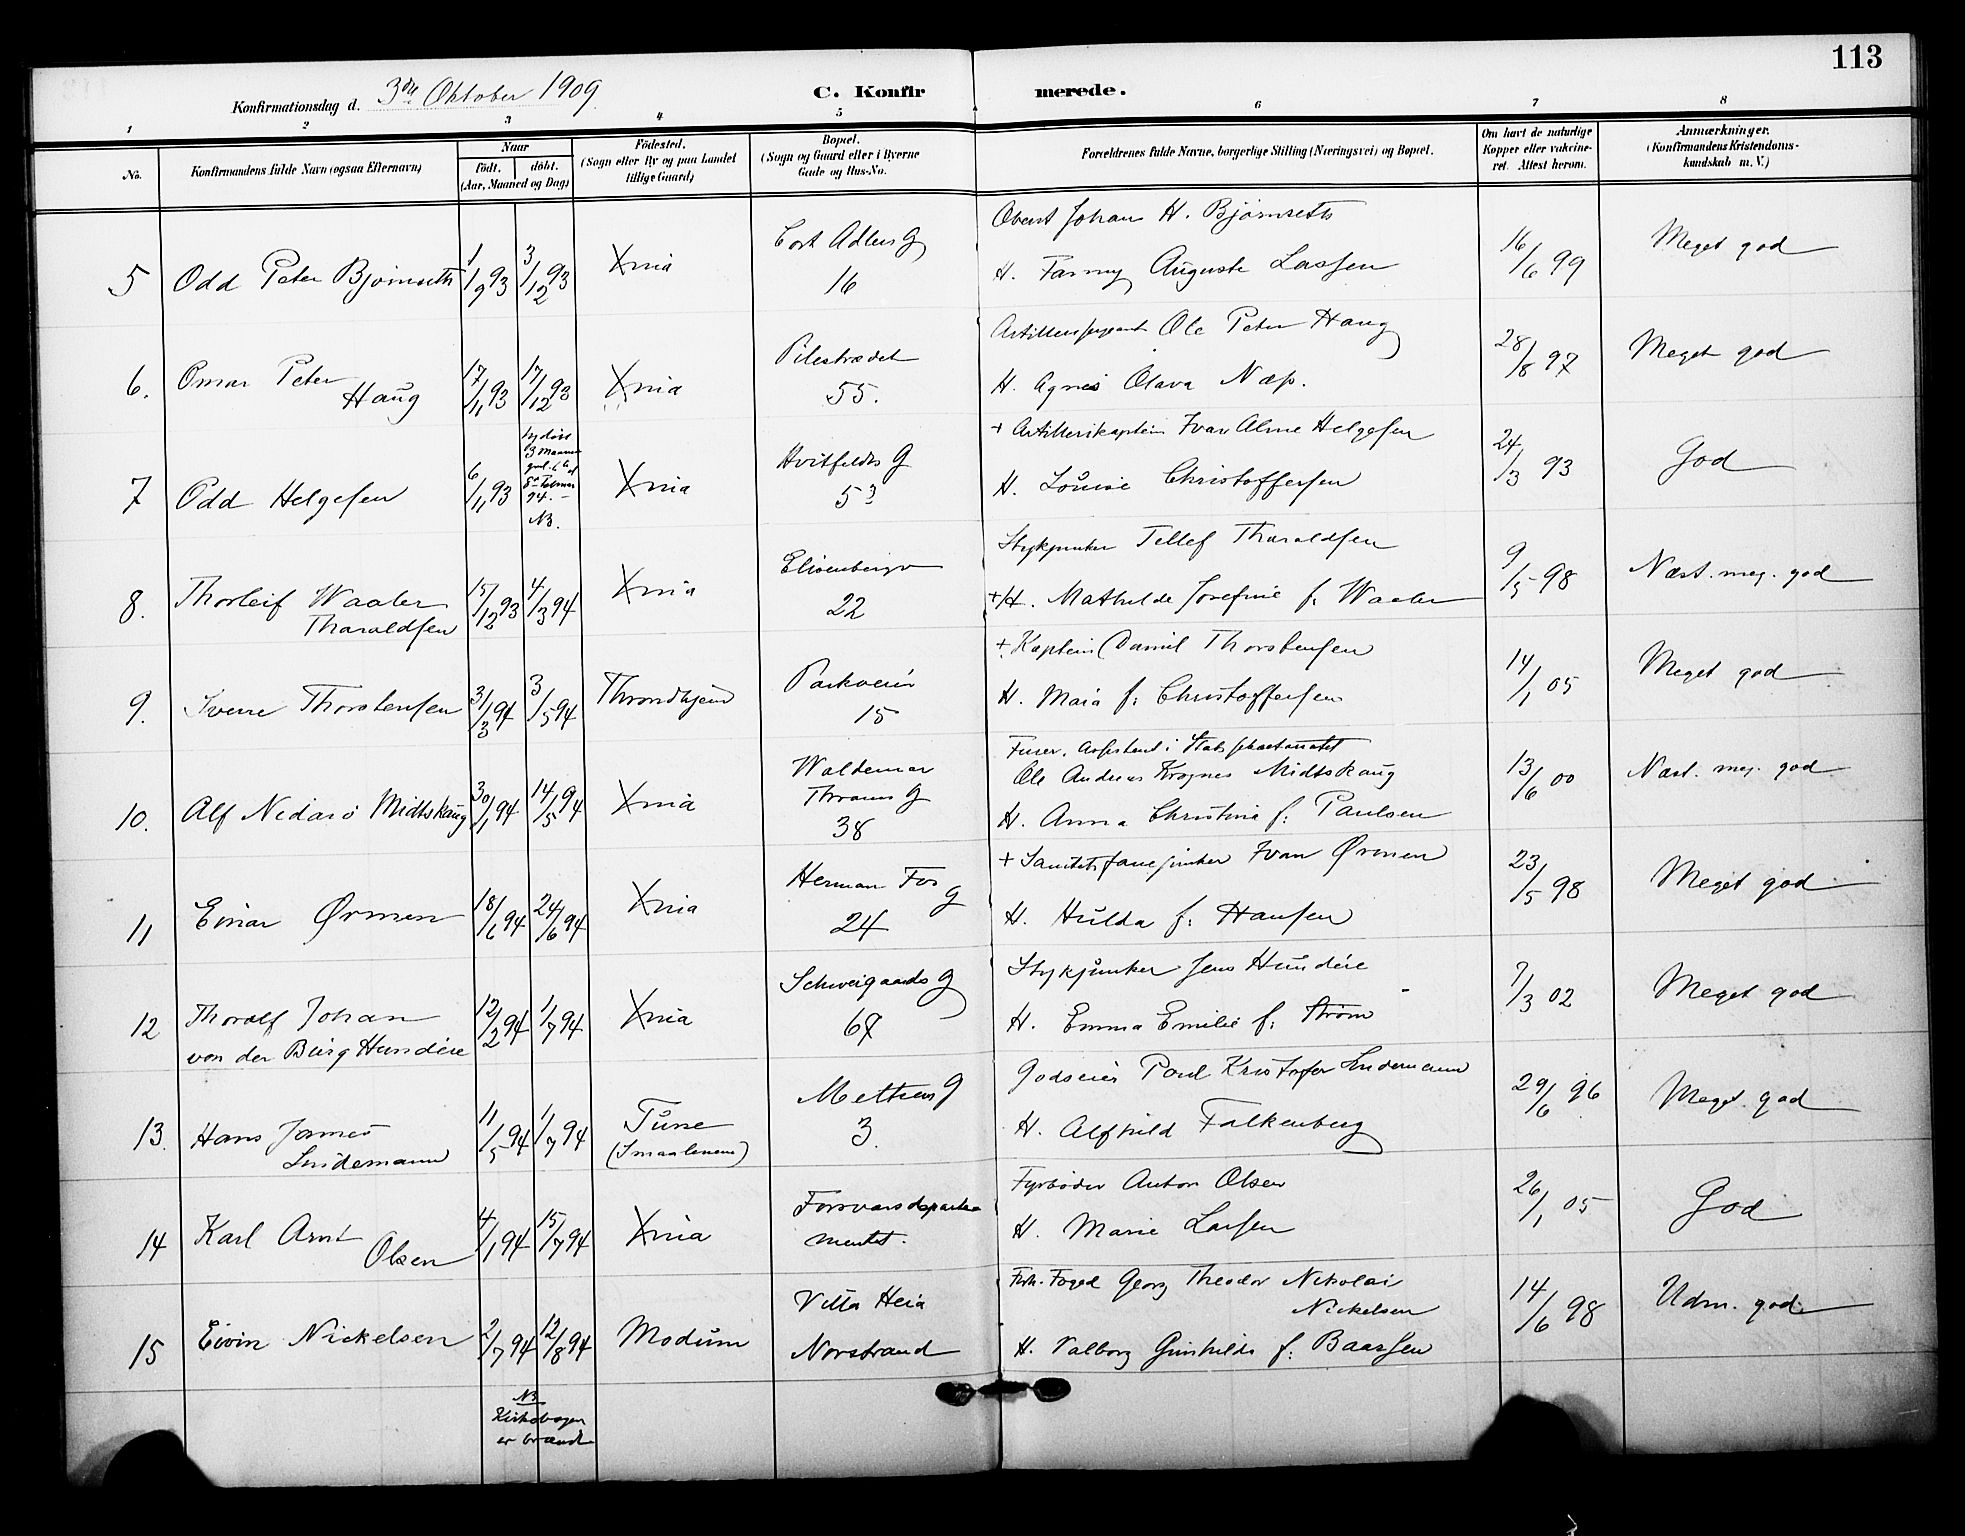 113
Konfirmationsdag d. 3die Oktober 1909.
C. Konfirmerede.
1 2 3 4 5 6 7 8
No.
Konfirmandens fulde Navn (ogsaa Efternavn)
Naar
født. døbt.
(Aar, Maaned og Dag)
Fødested.
(Sogn eller By og paa Landet
tillige Gaard)
Bopæl.
(Sogn og Gaard eller i Byerne
Gade og Hus-No.
Forældrenes fulde Navne, borgerlige Stilling (Næringsvei) og Bopæl.
Om havt de naturlige
Kopper eller vakcine-
ret. Attest herom.
Anmærkninger.
(Konfirmandens Kristendoms-
kundskab m. V.)
5 Odd Peter Bjørnseth 1/9 93 3/12 93 Xnia
Cort Adlers G
16
Oberst Johan H. Bjørnseth
H. Fanny Auguste Lassen
16/6 99
Meget god
6. Omar Peter
Haug
17/11 93 17/12 93 Xnia
Pilestrædet
55.
Artillerisergeant Ole Peter Haug
H. Agnes Olava Næss.
28/8 97
Meget god
7 Odd Helgesen 6/11 93
94.
NB.
Xnia
Hvitfeldts G
5 3
+ Artillerikaptein Ivar Alme Helgesen
H. Louise Christoffersen
24/3 93
God
8. Thorleif Waaler
Tharaldsen
15/12 93 4/3 94 Xnia
Elisenbergv
22
Stykjunker Tellef Tharaldsen
+ H. Mathilde Josefine f: Waaler
9/5 98
Næst. meg. god
9. Sverre Thorstensen 31/3 94 3/5 94 Throndhjem
Parkveien
15
+ Kaptein Daniel Thorstensen
H. Maia f: Christoffersen
14/1 05
Meget god
10. Alf Nidarø Midtskaug 30/1 94 14/5 94 Xnia
Waldemar
Thranes G
38
Furer, Assistent i
Ole Andreas Krognes Midtskaug
H. Anna Christine f: Paulsen
13/6 00
Næst. meg. god
11 Einar Ørmen 18/6 94 24/6 94 Xnia
Herman Fos G
24
+ Sanitetsfanejunker Ivan Ørmen
H. Hulda f: Hansen
23/5 98
Meget god
12 Thoralf Johan
von der Burg Hundere
12/2 94 1/7 94 Xnia
Schweigaards G
67
Stykjunker Jens Hundere
H. Emma Emilie f: Strøm
7/3 02
Meget god
13. Hans James
Lindemann
11/5 94 1/7 94 Tune
(Smaalenene)
Meltzers G
3.
Godseier Poul Kristofer Lindemann
H. Alfhild Falkenberg
29/6 96
Meget god
14 Karl Arnt
Olsen
4/1 94 15/7 94 Xnia
Forsvarsdeparte
mentet.
Fyrbøder Anton Olsen
H. Marie Larsen
26/1 05
God
15 Eivin Nickelsen 2/7 94 12/8 94 Modum
Villa Heia
Norstrand
Forh. Foged Georg Theodor Nikolai
Nickelsen
H. Valborg Gunhilda f: Baassen
14/6 98
Udm. god
NB
Kirkebogen
er brændt